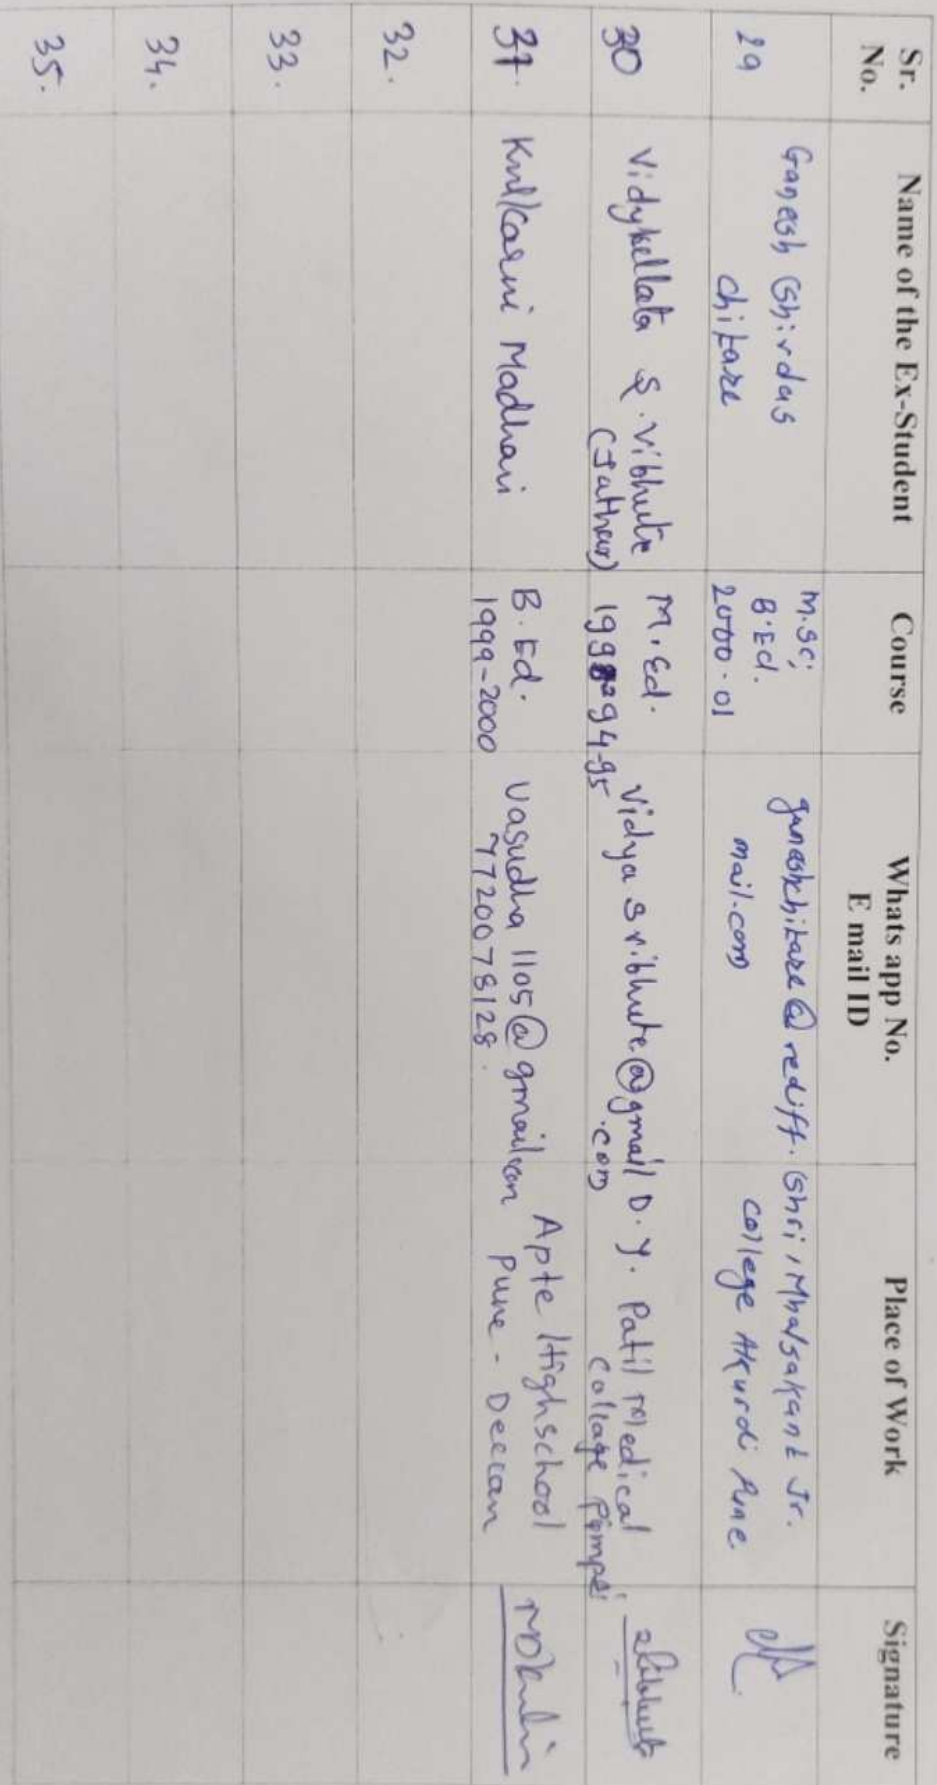 Sr. No.
Name of the Ex-Student
Course
Whats app No.
E mail ID
Place of Work
Signature
29
Ganesh Ghirdas
chitare
M.Sc;
B.Ed.
2000-01
ganeshchitare@rediff.
mail.com
Shri, Mhalsakant Jr.
college Akurdi Pune
30
S. Vibhute
(Jathar)
M.Ed.
94-95
vidyasvibhute@gmail
.com
D.Y. Patil Medical
Collage Pimpri
31.
Kulkarni Madhavi
B.Ed.
1999-2000
vasudha1105@gmail.com
7720078128.
Apte Highschool
Pune - Deccan
32.
33.
34.
35.